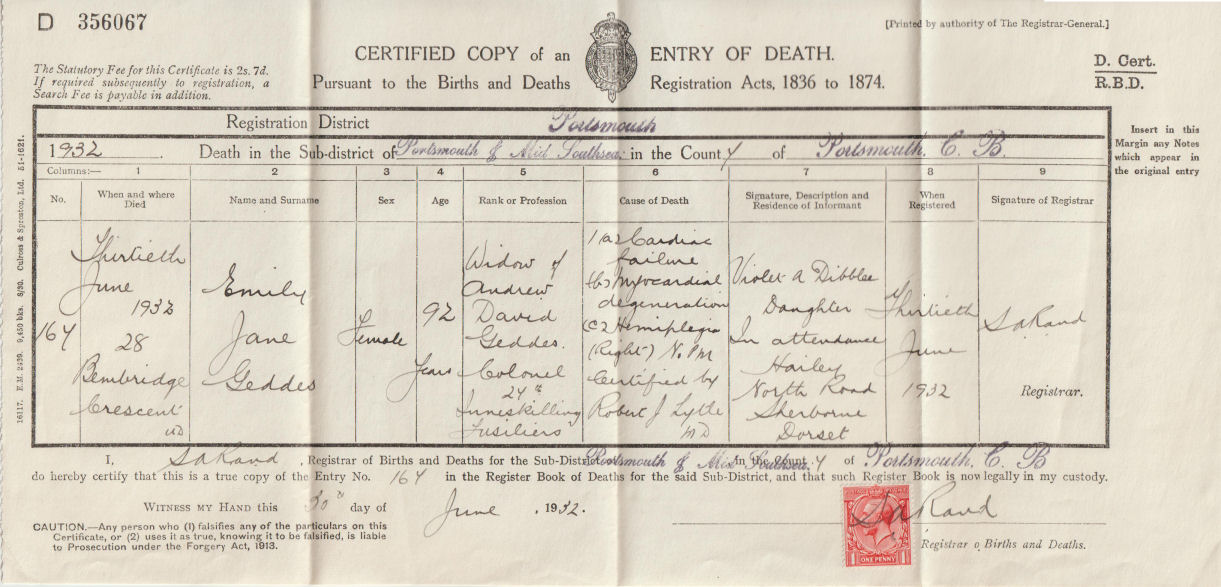 D 356067
[Printed by authority of The Registrar-General.]
CERTIFIED COPY of an ENTRY OF DEATH.
Pursuant to the Births and Deaths Registration Acts, 1836 to 1874.
The Statutory Fee for this Certificate is 2s. 7d.
If required subsequently to registration, a
Search Fee is payable in addition.
D. Cert.
R.B.D.
Registration District Portsmouth
1932. Death in the Sub-district of Portsmouth & Mid Southsea. in the County of Portsmouth. C. B.
Insert in this
Margin any Notes
which appear in
the original entry
Columns:— 1 2 3 4 5 6 7 8 9
No.
When and where
Died
Name and Surname
Sex
Age
Rank or Profession
Cause of Death
Signature, Description and
Residence of Informant
When
Registered
Signature of Registrar
164
Thirtieth
June
1932
28
Bembridge
Crescent
UD
Emily
Jane
Geddes
Female
92
Years
Widow of
Andrew
David
Geddes.
Colonel
27th
Inniskilling
Fusiliers
1(a) Cardiac
failure
(b) Myocardial
degeneration
(c) Hemiplegia
(Right) No P M
Certified by
Robert J Lytle
MD
Violet A Dibblee
Daughter
In attendance
Hailey
North Road
Sherborne
Dorset
Thirtieth
June
1932
S A Rand
Registrar.
16117. E.M. 2439. 9,450 bks. 8/30. Culross & Sproston, Ltd. 51-1621.
I, S A Rand, Registrar of Births and Deaths for the Sub-District Portsmouth & Mid Southsea. in the County of Portsmouth. C. B
do hereby certify that this is a true copy of the Entry No. 164 in the Register Book of Deaths for the said Sub-District, and that such Register Book is now legally in my custody.
WITNESS MY HAND this 30th day of June, 1932.
S A Rand
CAUTION.—Any person who (1) falsifies any of the particulars on this
Certificate, or (2) uses it as true, knowing it to be falsified, is liable
to Prosecution under the Forgery Act, 1913.
1 ONE PENNY 1
Registrar o Births and Deaths.